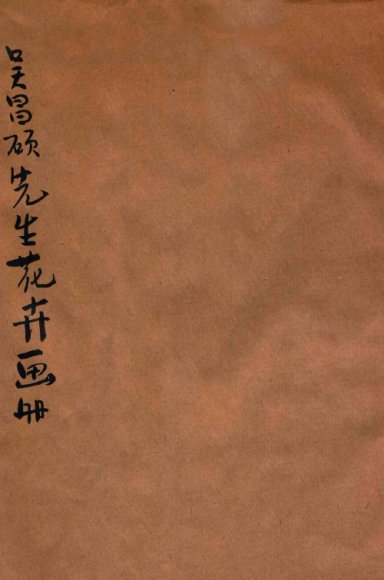 吴昌硕先生花卉画册